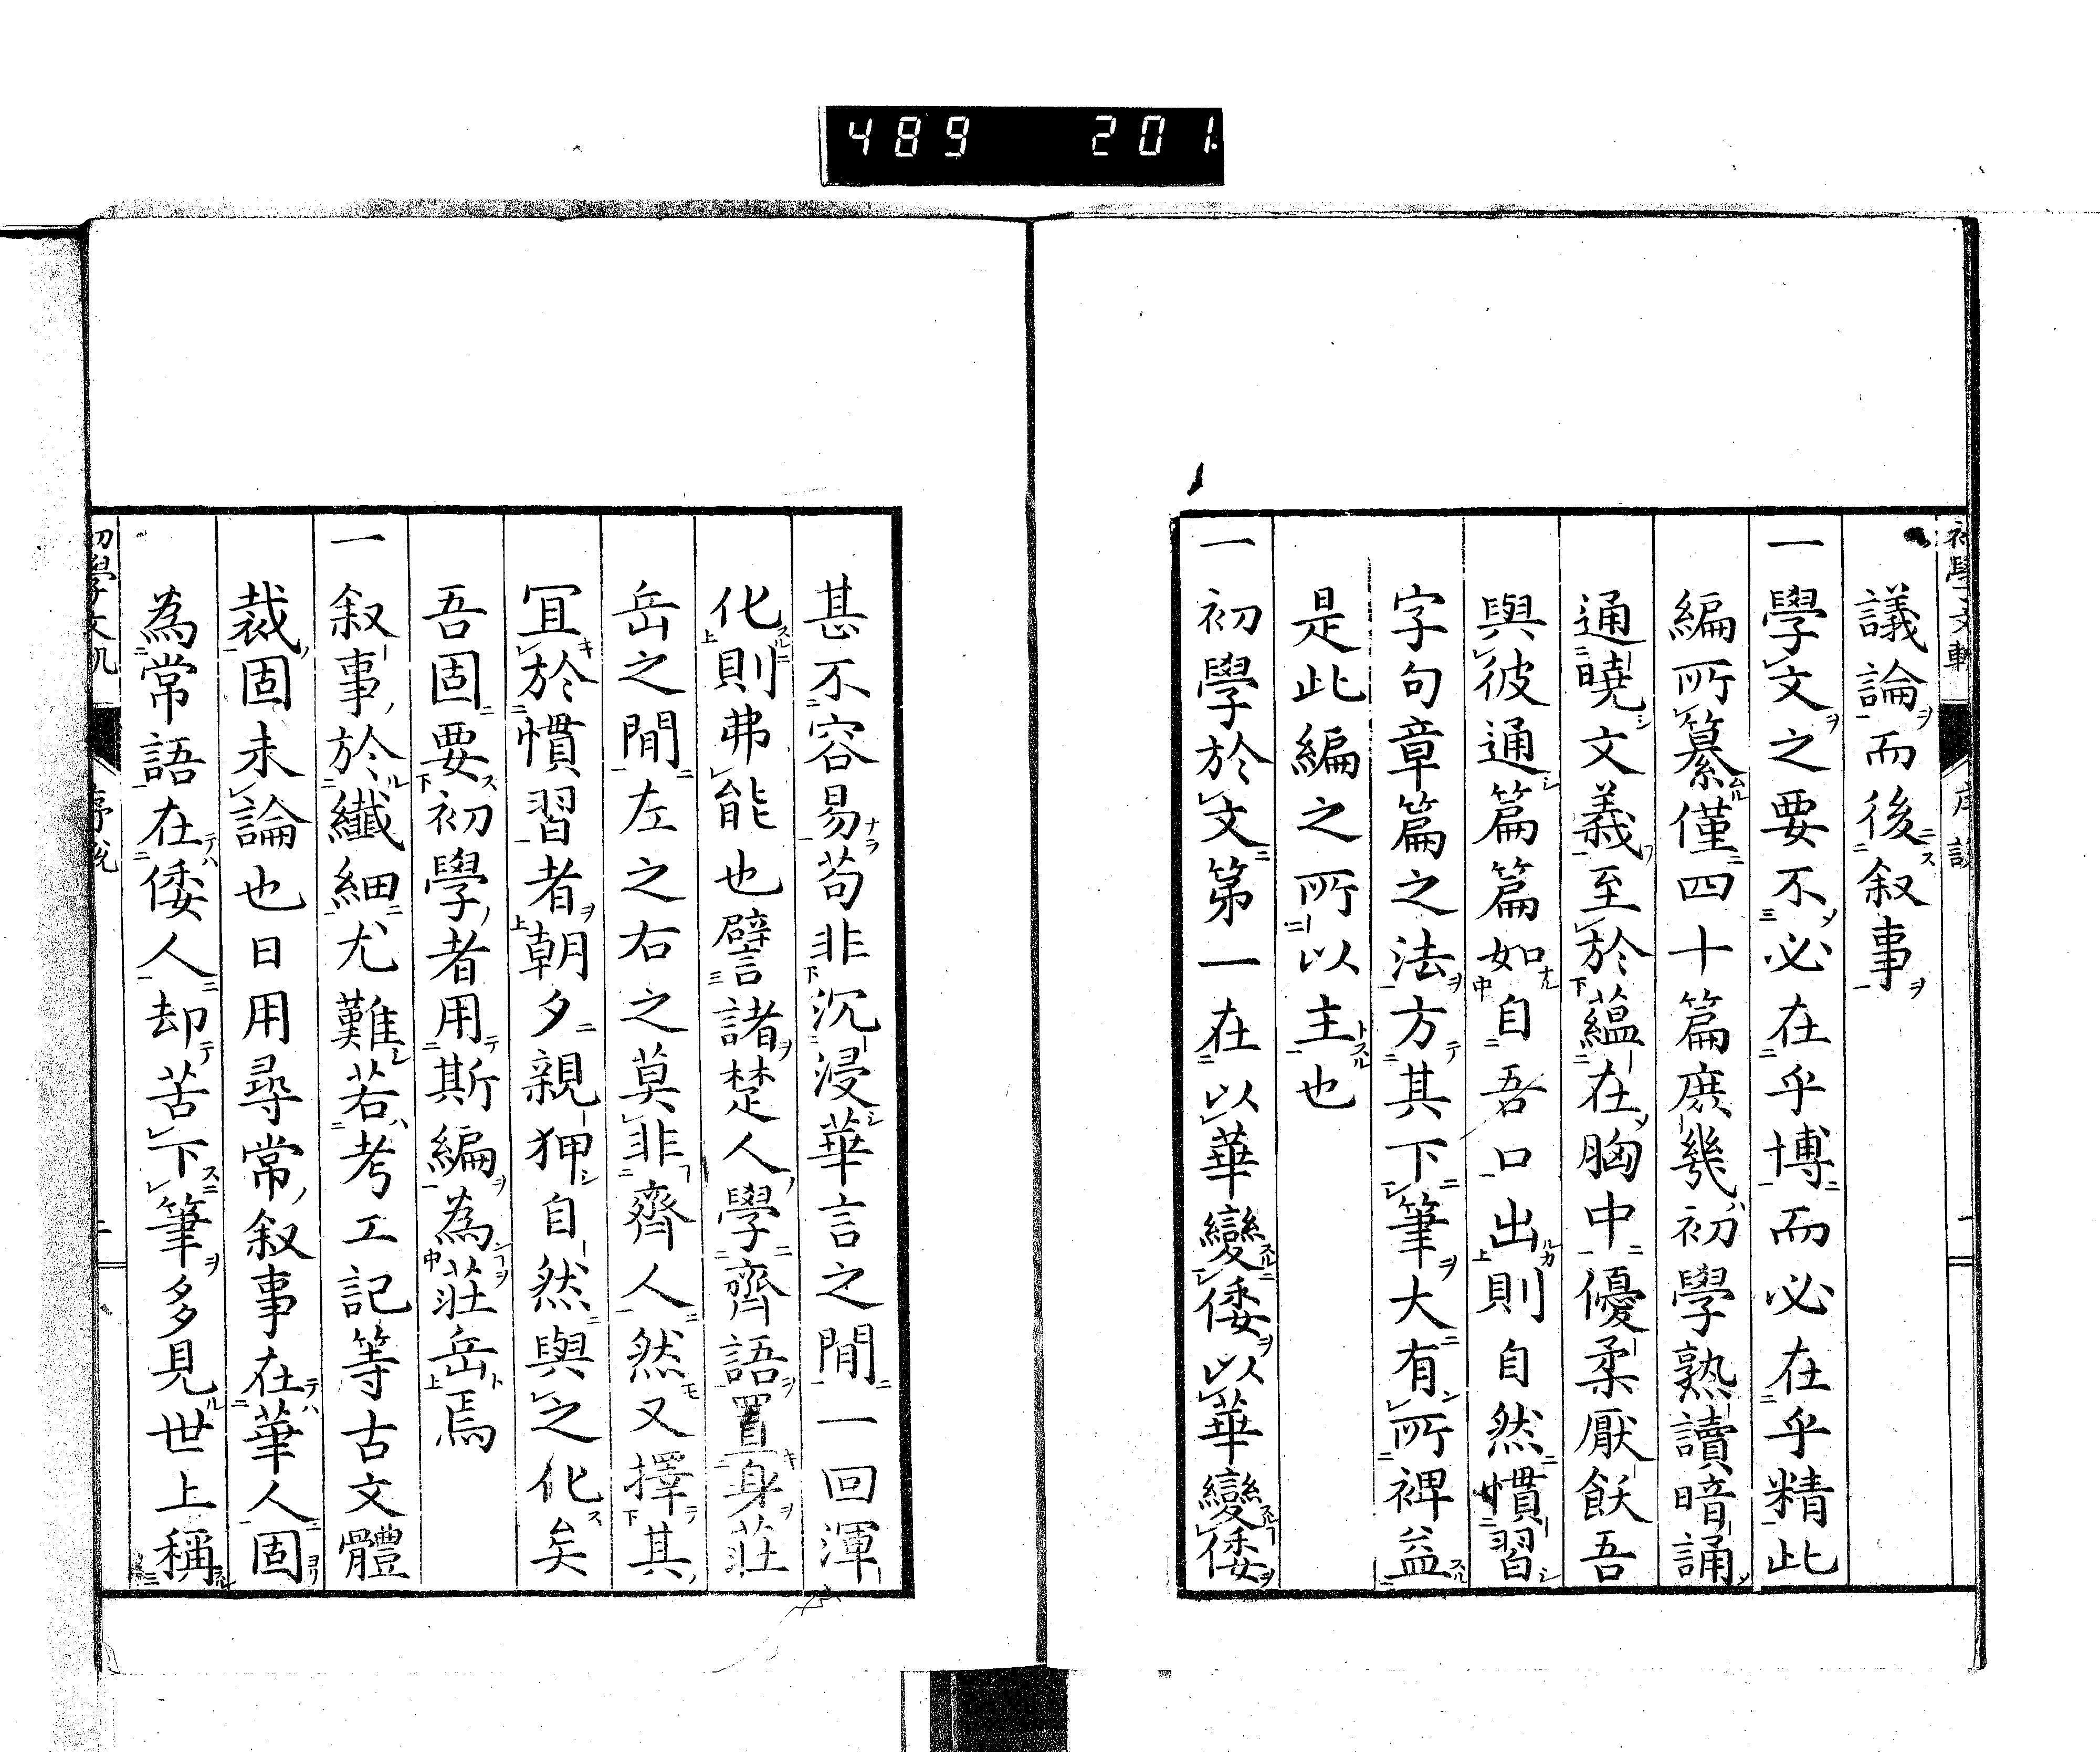 489 201
議論而後叙事
一學文之要不必在乎博而必在乎精此
編所纂僅四十篇庶幾初學熟讀暗誦
通曉文義至於蘊在胸中優柔厭飫吾
與彼通篇篇如自吾口出則自然慣習
字句章篇之法方其下筆大有所裨益
是此編之所以主也
一初學於文第一在以華變倭以華變倭
甚不容易苟非沉浸華言之間一回渾
化則弗能也譬諸楚人學齊語置身莊
岳之間左之右之莫非齊人然又擇其
冝於慣習者朝夕親狎自然與之化矣
吾固要初學者用斯編為莊岳焉
一叙事於纖細尤難若考工記等古文體
裁固未論也日用尋常叙事在華人固
為常語在倭人却苦下筆多見世上稱